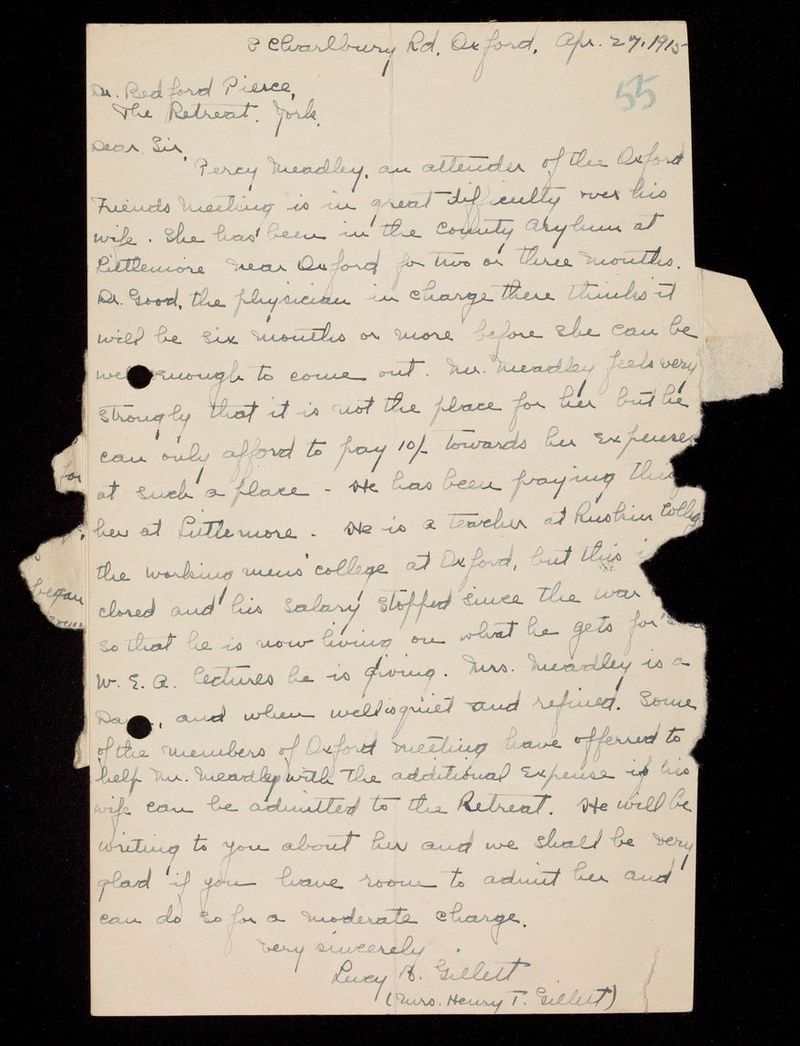 Charlbury Rd. Oxford. Apr. 27. 1915
55
Dr. Bedford Pierce,
The Retreat. York.
Dear Sir,
Percy Meadley, an attender of the Oxford
Friends Meeting is in great difficulty over his
wife. She has been in the County Asylum at
Littlemore near Oxford for two or three months.
Dr. Good, the physician in charge there thinks it
will be six months or more before she can be
we enough to come out. Mr. Meadley feels very
strongly that it is not the place for her but he
can only afford to pay 10/- towards her expense
at such a place - He has been paying this
for
her at Littlemore. He is a teacher at Ruskin Colleg
the working mens' college at Oxford, but this i
began
closed and his salary stopped since the war
so that he is now living on what he gets for
W. E. A. lectures he is giving. Mrs. Meadley is a
Da , and when well is quiet and refined. Some
of the members of Oxford Meeting have offerred to
help Mr. Meadley with the additional expense if his
wife can be admitted to the Retreat. He will be
writing to you about her and we shall be very
glad if you have room to admit her and
can do so for a moderate charge.
Very sincerely
Lucy B. Gillett
(Mrs. Henry T. Gillett)